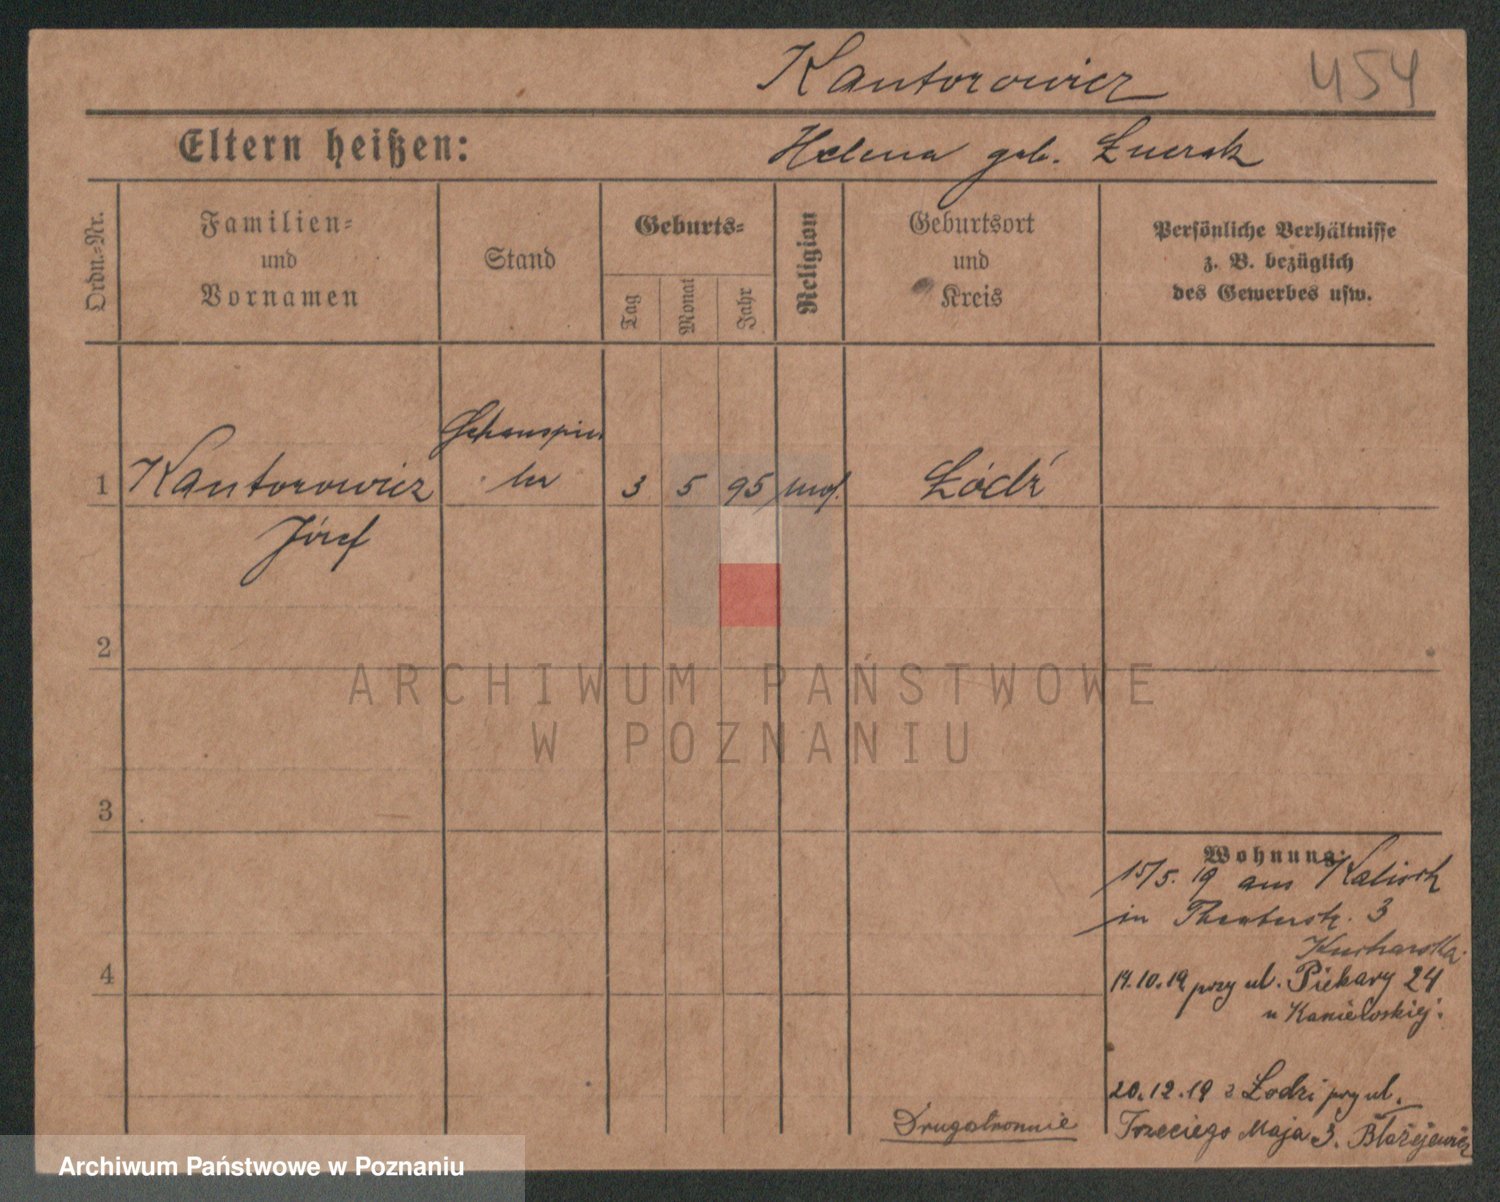 Kantorowicz
454
Eltern heißen:
Helena geb.
Ordn.-Nr.
Familien-
und
Vornamen
Stand
Geburts-
Tag
Monat
Jahr
Religion
Geburtsort
und
Kreis
Persönliche Verhältnisse
z. B. bezüglich
des Gewerbes usw.
Schauspie
ler
1 Kantorowicz 3 5 95 mos. Łódź
Józef
2
ARCHIWUM PAŃSTWOWE
W POZNANIU
3
Wohnung:
15/5. 19 aus Kalisch
in Theaterstr. 3
Kucharska.
14.10.19 przy ul. Piekary 24
4
u
20.12.19 z Łodzi przy ul.
Trzeciego Maja 3. Błażejewicz
Drugostronnie
Archiwum Państwowe w Poznaniu